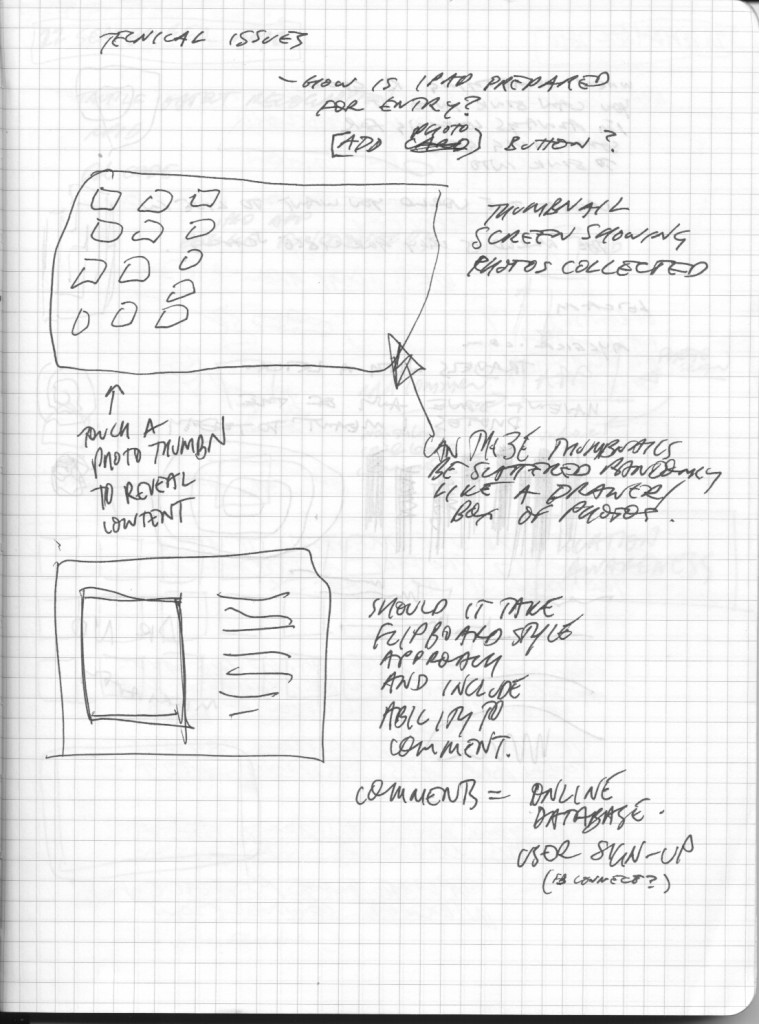 TECNICAL ISSUES
- HOW IS IPAD PREPARED
FOR ENTRY?
PHOTO
[ADD CARD) BUTTON?
THUMBNAIL
SCREEN SHOWING
PHOTOS COLLECTED
TOUCH A
PHOTO THUMBN
TO REVEAL
CONTENT
CAN THESE THUMBNAILS
BE SCATTERED RANDOMLY
LIKE A DRAWER/
BOX OF PHOTOS.
SHOULD IT TAKE
FLIPBOARD STYLE
APPROACH
AND INCLUDE
ABILITY TO
COMMENT.
COMMENTS = ONLINE
DATABASE.
USER SIGN-UP
(FB CONNECT?)